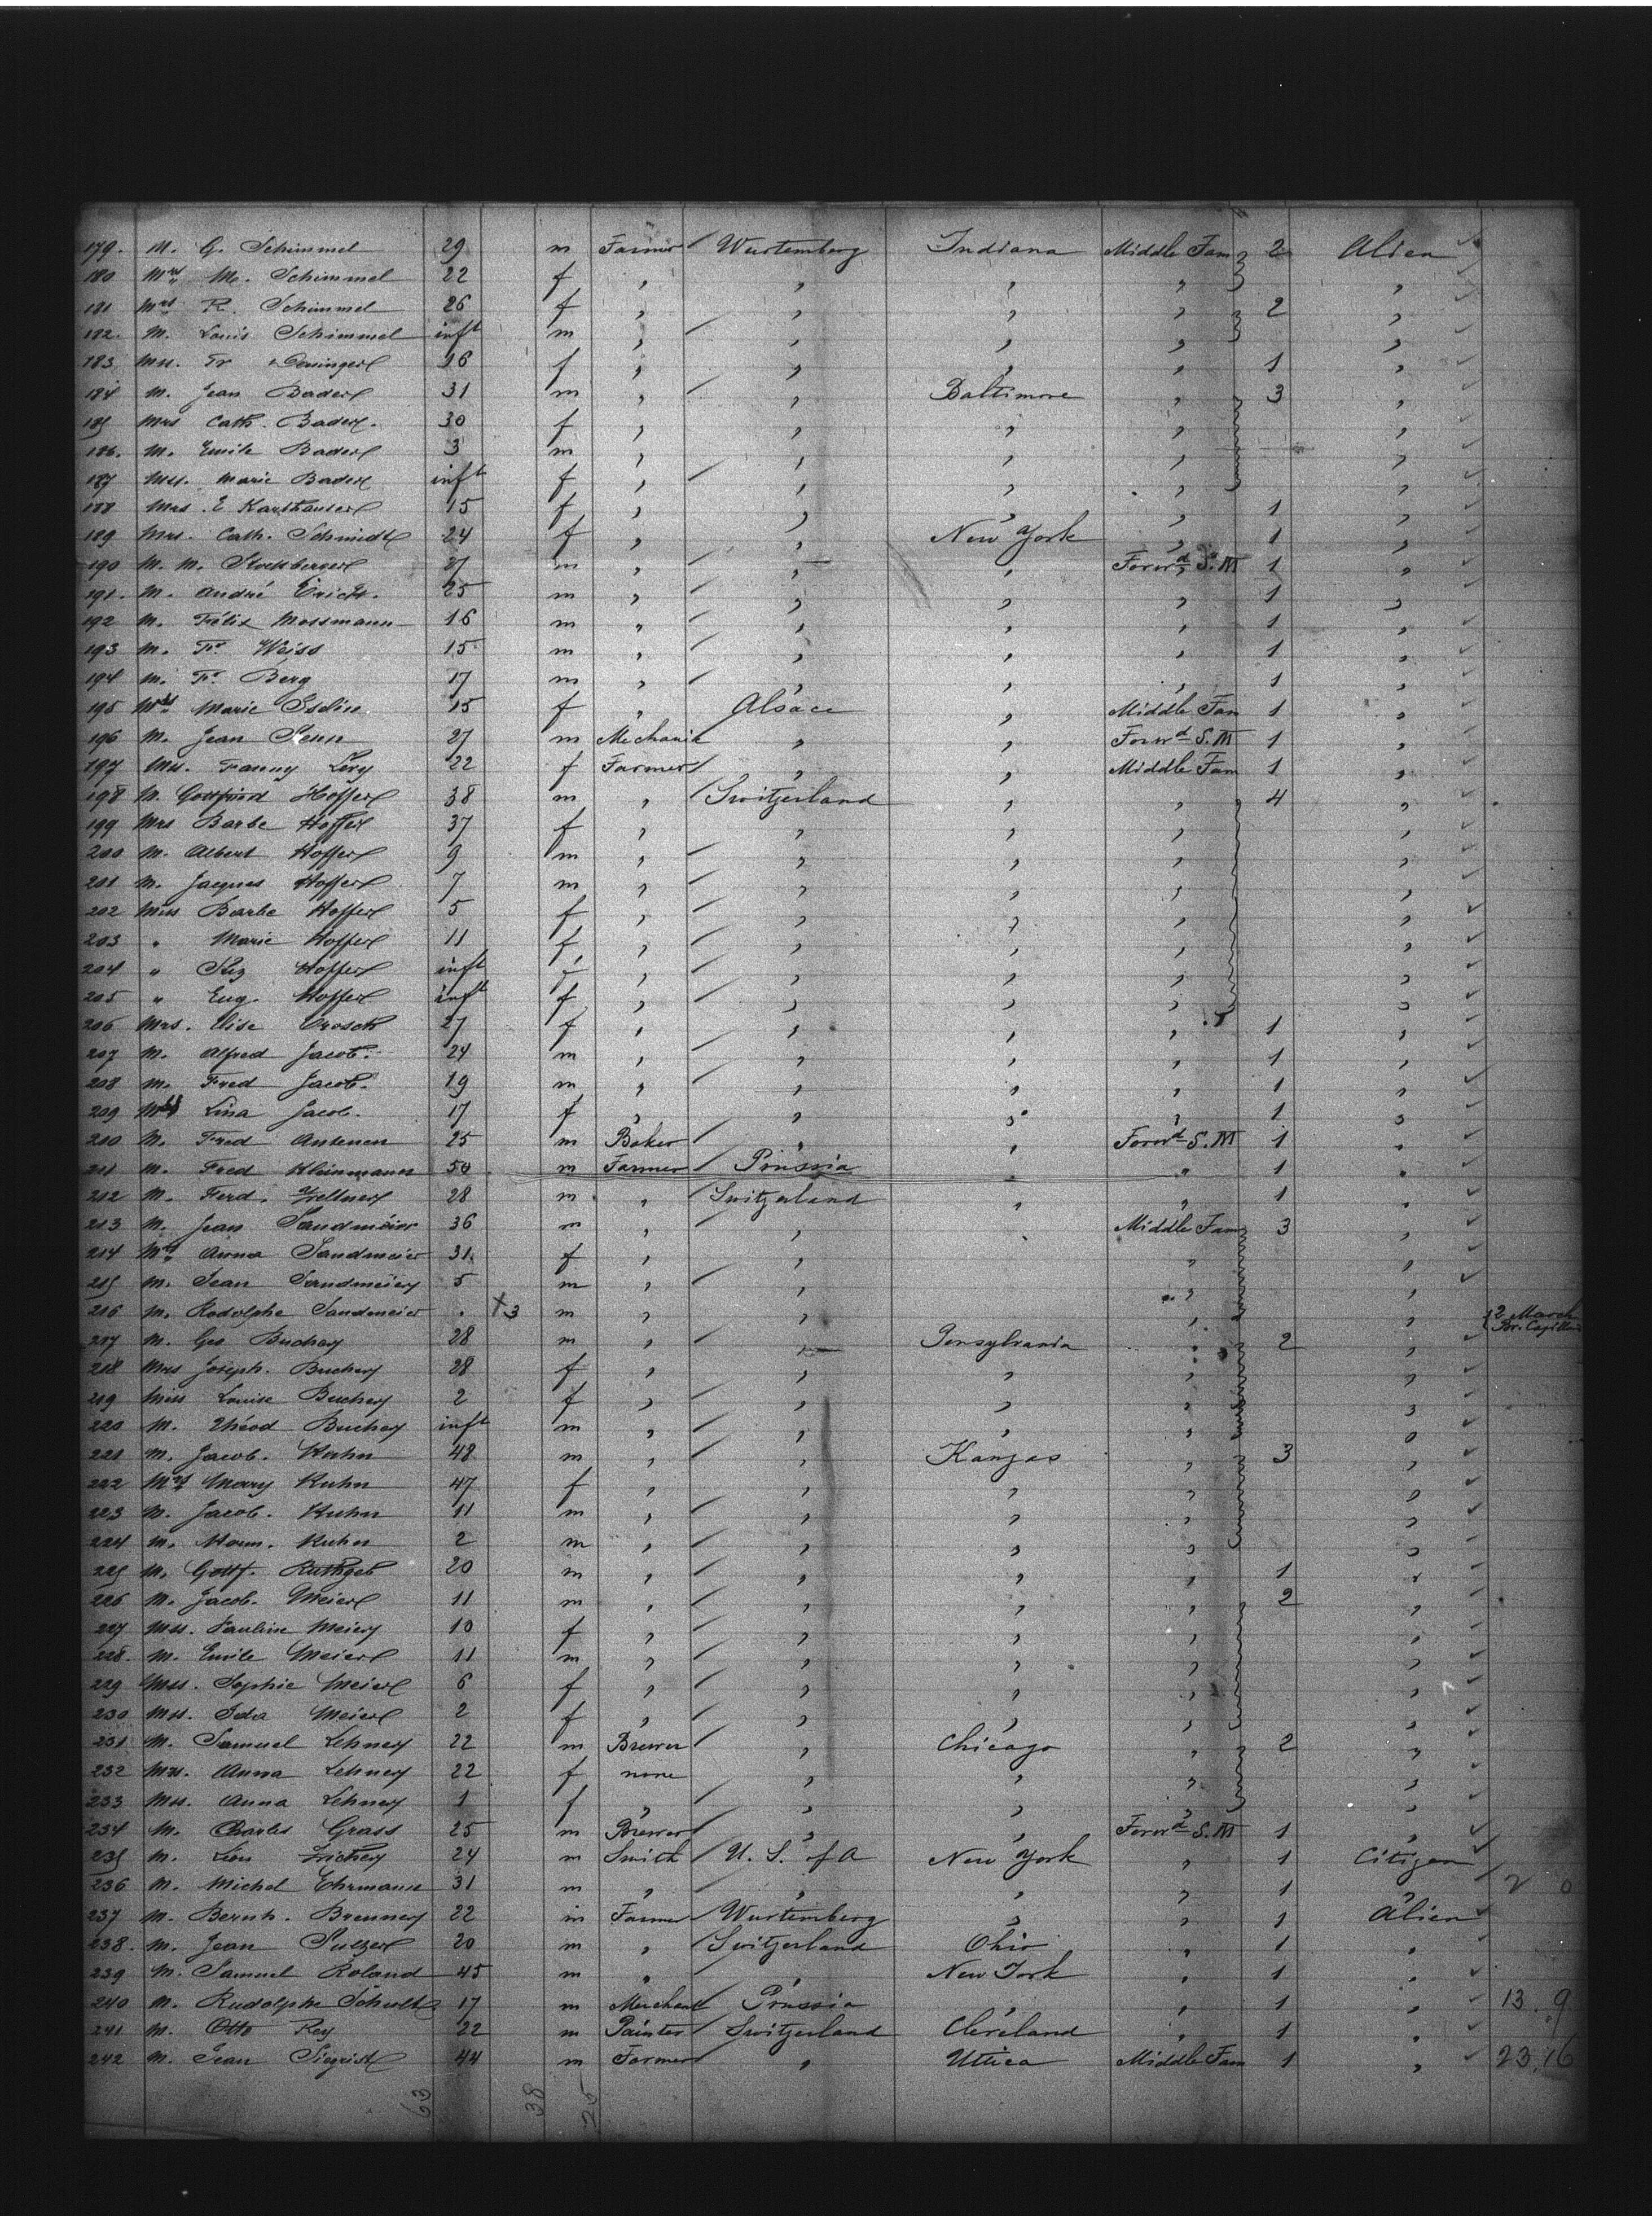 179. M. G. Schimmel 29 m Farmer Wurtemberg Indiana Middle Fam 2 Alien
180 Mrs M. Schimmel 22 f " " " " "
181 Mrs R. Schimmel 26 f " " " " 2 "
182. M. Louis Schimmel inft m " " " " "
183. Mss. Fr 16 f " " " " 1 "
184 M. Jean Bader 31 m " " Baltimore " 3 "
185 Mrs Cath. Bader. 30 f " " " " "
186. M. Emile Bader 3 m " " " " "
187 Mss. Marie Bader inft f " " " " "
188 Mrs. E Karthauser 15 f " " " " 1 "
189 Mrs. Cath. Schmidt 24 f " " New York " 1 "
190 M. M. 27 m " " " Forwd S. M 1 "
191. M. André Erich. 25 m " " " " 1 "
192 M. Félix Mossmann 16 m " " " " 1 "
193 M. Fr. Weiss 15 m " " " " 1 "
194 M. Fr. Berg 17 m " " " " 1 "
195 Mss Marie Iselin 15 f " Alsace " Middle Fam 1 "
196 M. Jean Senn 27 m Mechanic " " Forwd S. M 1 "
197 Mss. Fanny Levy 22 f Farmer " " Middle Fam 1 "
198 M. Gottfried Hoffer 38 m " Switzerland " " 4 "
199 Mrs Barbe Hoffer 37 f " " " " "
200 M. Albert Hoffer 9 m " " " " "
201 M. Jacques Hoffer 7 m " " " " "
202 Miss Barbe Hoffer 5 f " " " " "
203 " Marie Hoffer 11 f " " " " "
204 " Hoffer inft f " " " " "
205 " Eug. Hoffer inft f " " " " "
206 Mrs. Elise 27 f " " " " 1 "
207 M. Alfred Jacob. 24 m " " " " 1 "
208 M. Fred Jacob. 19 m " " " " 1 "
209 Mss Lina Jacob. 17 f " " " " 1 "
210 M. Fred Antenen 25 m Baker " " Forwd S. M 1 "
211 M. Fred Kleinmann 50 m Farmer Prussia " 1 "
212 M. Ferd. Zellner 28 m " Switzerland " " 1 "
213 M. Jean Sandmeier 36 m " " " Middle Fam 3 "
214 Mrs Anna Sandmeier 31. f " " " "
215 M. Jean Sandmeier 5 m " " " "
216 M. Rodolphe Sandmeier . 3 m " " " " 2 March
217 M. Geo Bucher 28 m " " Pensylvania " 2 "
218 Mrs Joseph. Bucher 28 f " " " " "
219 Miss Louise Bucher 2 f " " " " "
220 M. Théod Bucher inft m " " " " "
221 M. Jacob. Kuhn 48 m " " Kanzas " 3 "
222 Mrs Mary Kuhn 47 f " " " " "
223 M. Jacob. Kuhn 11 m " " " " "
224 M. Kuhn 2 m " " " " "
225 M. Gottf. Ruthgeb 20 m " " " " 1 "
226 M. Jacob. Meier 11 m " " " " 2 "
227 Mss. Pauline Meier 10 f " " " " "
228. M. Emile Meier 11 m " " " " "
229 Mss. Sophie Meier 6 f " " " " "
230 Mss. Ida Meier 2 f " " " " "
231 M. Samuel Lehner 22 m Brewer " Chicago " 2 "
232 Mrs. Anna Lehner 22 f none " " " "
233 Mss. Anna Lehner 1 f " " " " "
234 M. Charles Grass 25 m Brewer " " Forwd S. M 1 "
235 M. Léon Fricher 24 m Smith U. S. of A New York " 1 Citizen
236 M. Michel Ehrmann 31 m " " " " 1 " 2 0
237 M. Bernh. Brenner 22 m Farmer Wurtemberg " " 1 Alien
238. M. Jean Sulzer 20 m " Switzerland Ohio " 1 "
239 M. Samuel Roland 45 m " " New York " 1 "
240 M. Rudolphe Schultz 17 m Merchant Prussia " " 1 " 13. 9
241 M. Otto Rey 22 m Painter Switzerland Cleveland " 1 "
242 M. Jean Siegrist 44 m Farmer " Uttica Middle Fam 1 " 23.16
63 38 25